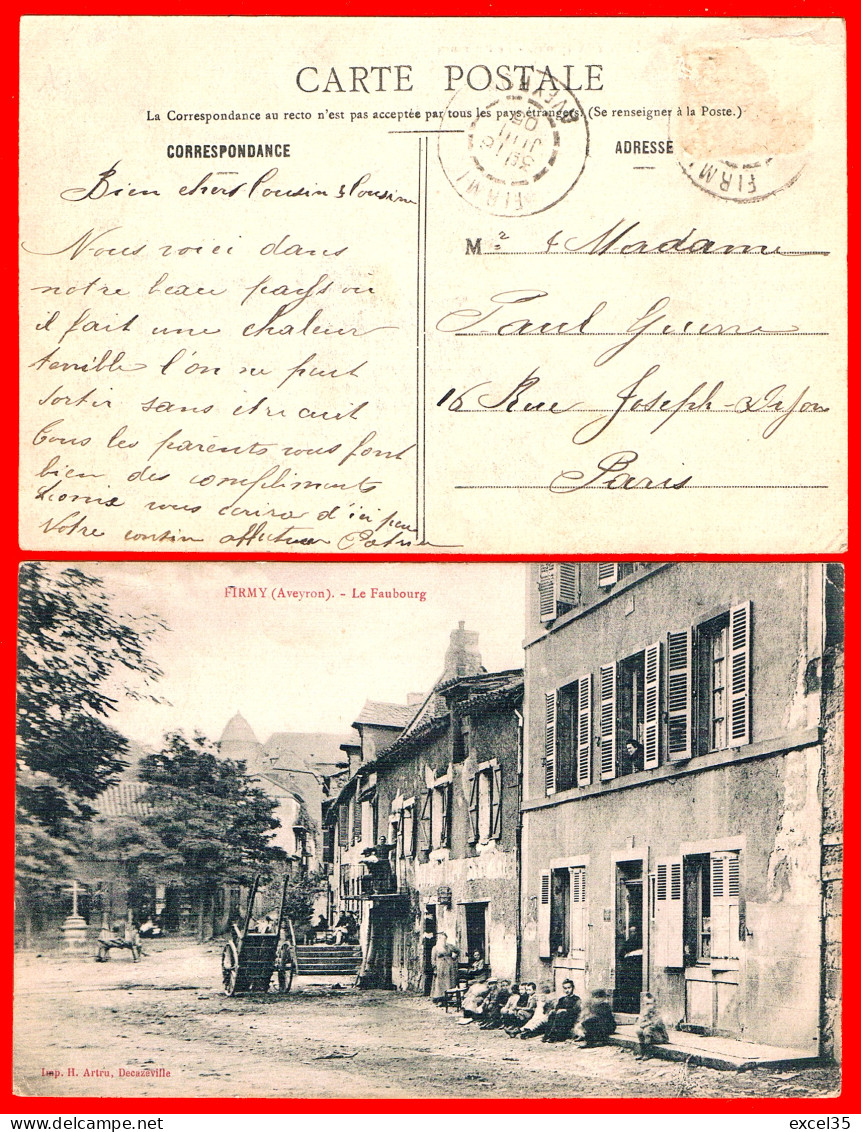 CARTE POSTALE
La Correspondance au recto n'est pas acceptée par tous les pays étrangers. (Se renseigner à la Poste.)
CORRESPONDANCE
ADRESSE
FIRMI
AVEYRON
FIRMI
Bien chers Cousin & Cousine
Nous voici dans
notre beau pays où
il fait une chaleur
terrible l'on ne peut
sortir sans être cuit
Tous les parents vous font
bien des compliments
vous écrira d'ici peu
Votre cousin affectueux
Mr & Madame
Paul Guerre
16 Rue Joseph-Dijon
Paris
FIRMY (Aveyron). - Le Faubourg
Imp. H. Artru, Decazeville
excel35